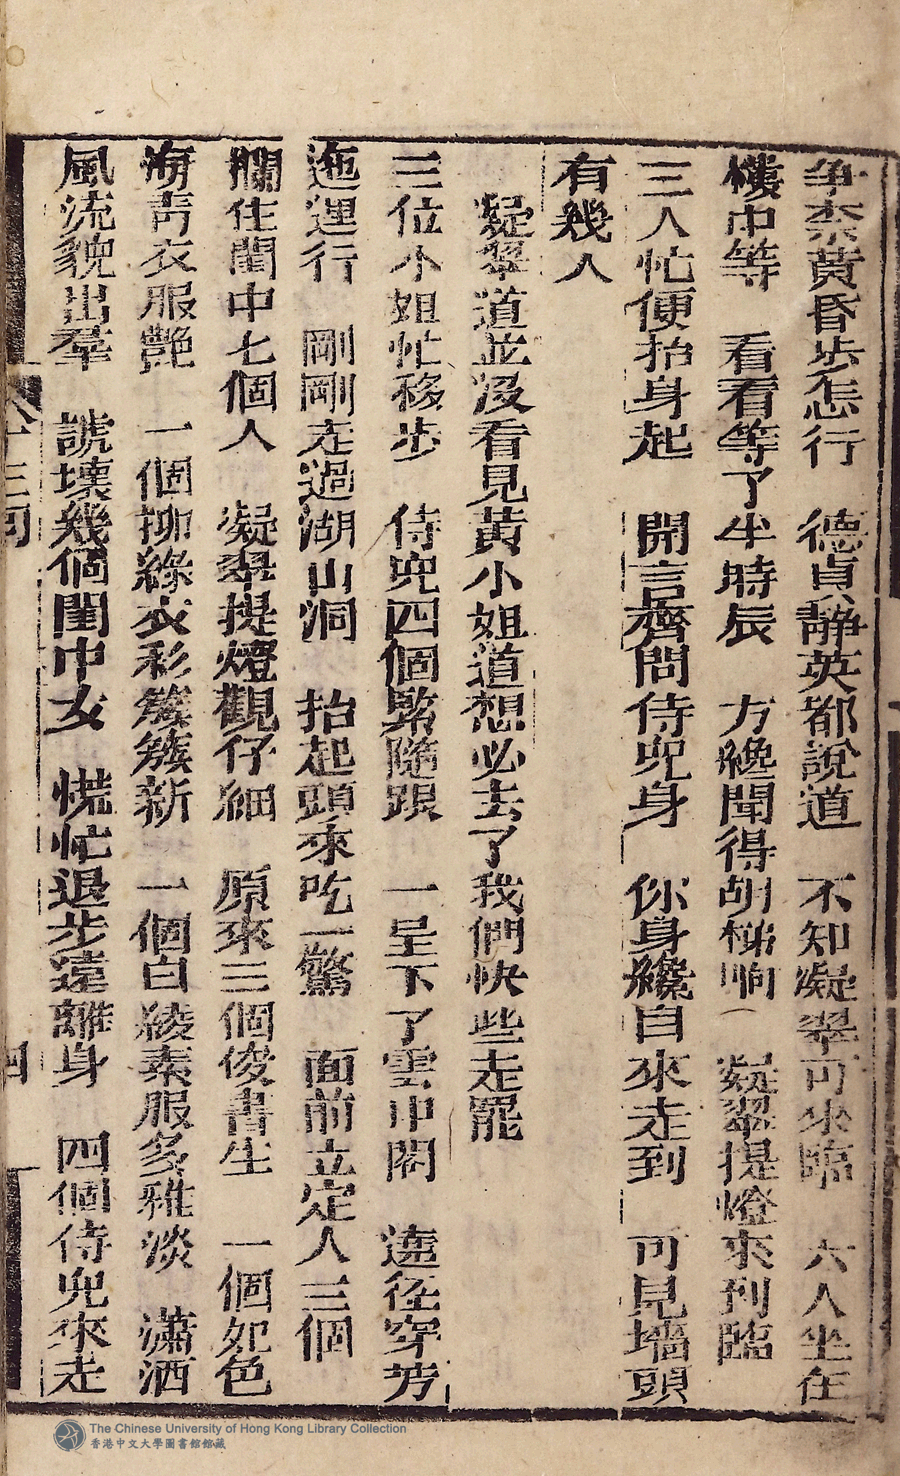 争奈黃昏步怎行　德貞靜英都說道　不知凝翠可來臨　六人坐在
樓中等　看看等了半時辰　方纔聞得胡梯响　凝翠提燈來到臨
三人忙便抬身起　開言齊問侍兒身　你身纔自來走到　可見墻頭
有幾人
凝翠道並沒看見黃小姐道想必去了我們快些走罷
三位小姐忙移步　侍兒四個緊隨跟　一呈下了雲中閣　遶徑穿芳
迤逕行　剛剛走過湖山洞　抬起頭來吃一驚　面前立定人三個
攔住閨中七個人　凝翠提燈觀仔細　原來三個俊書生　一個如色
海靑衣服艷　一個柳綠衣彩簇簇新　一個白綾素服多雅淡　瀟洒
風流貌出羣　諕壞幾個閨中女　慌忙退步遠離身　四個侍兒來走
十三回
四
The Chinese University of Hong Kong Library Collection
香港中文大學圖書館館藏